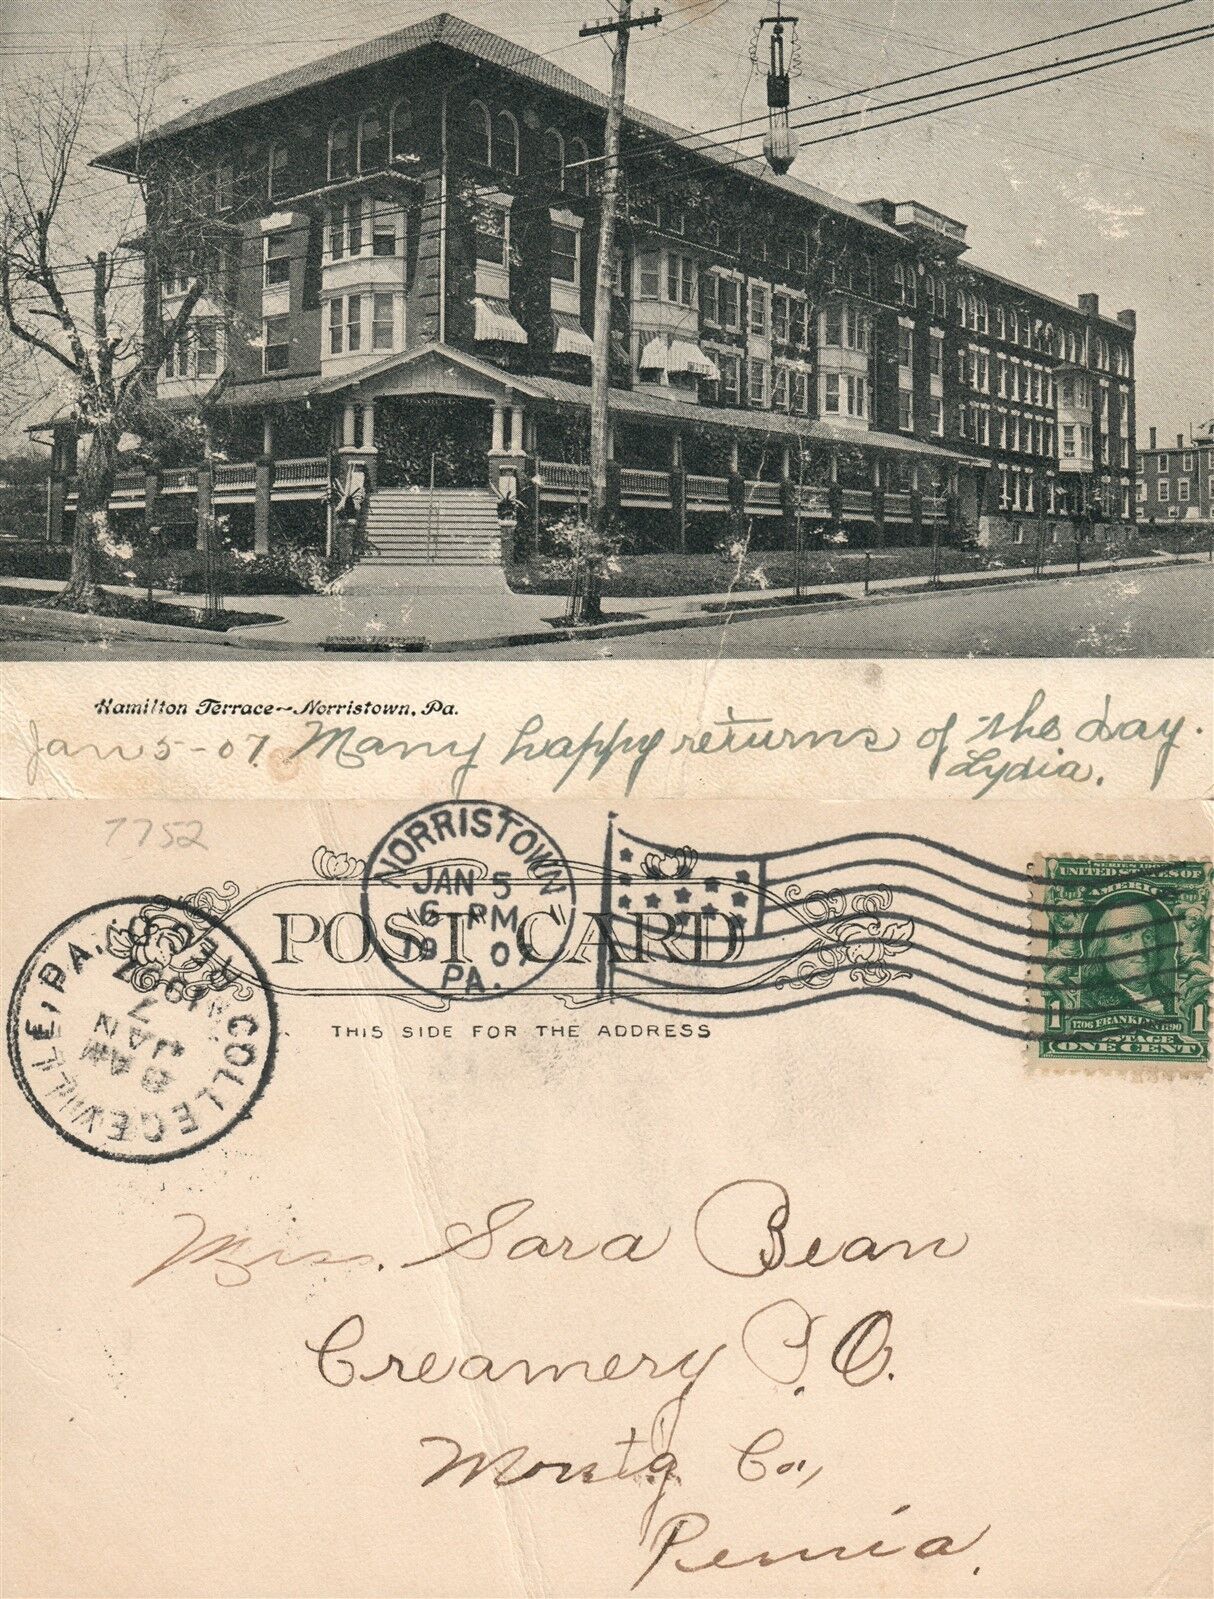 Hamilton Terrace~Norristown, Pa.
Jan 5-07. Many happy returns of the day.
Lydia.
7752
NORRISTOWN
JAN 5
6 PM
1907
PA.
POST CARD
THIS SIDE FOR THE ADDRESS
COLLEGEVILLE, PA.
REC'D.
JAN
7
8 AM
1907
UNITED STATES OF
AMERICA
1706 FRANKLIN 1790
1 POSTAGE 1
ONE CENT
Miss. Sara Bean
Creamery P.O.
Montg Co.,
Penn'a.